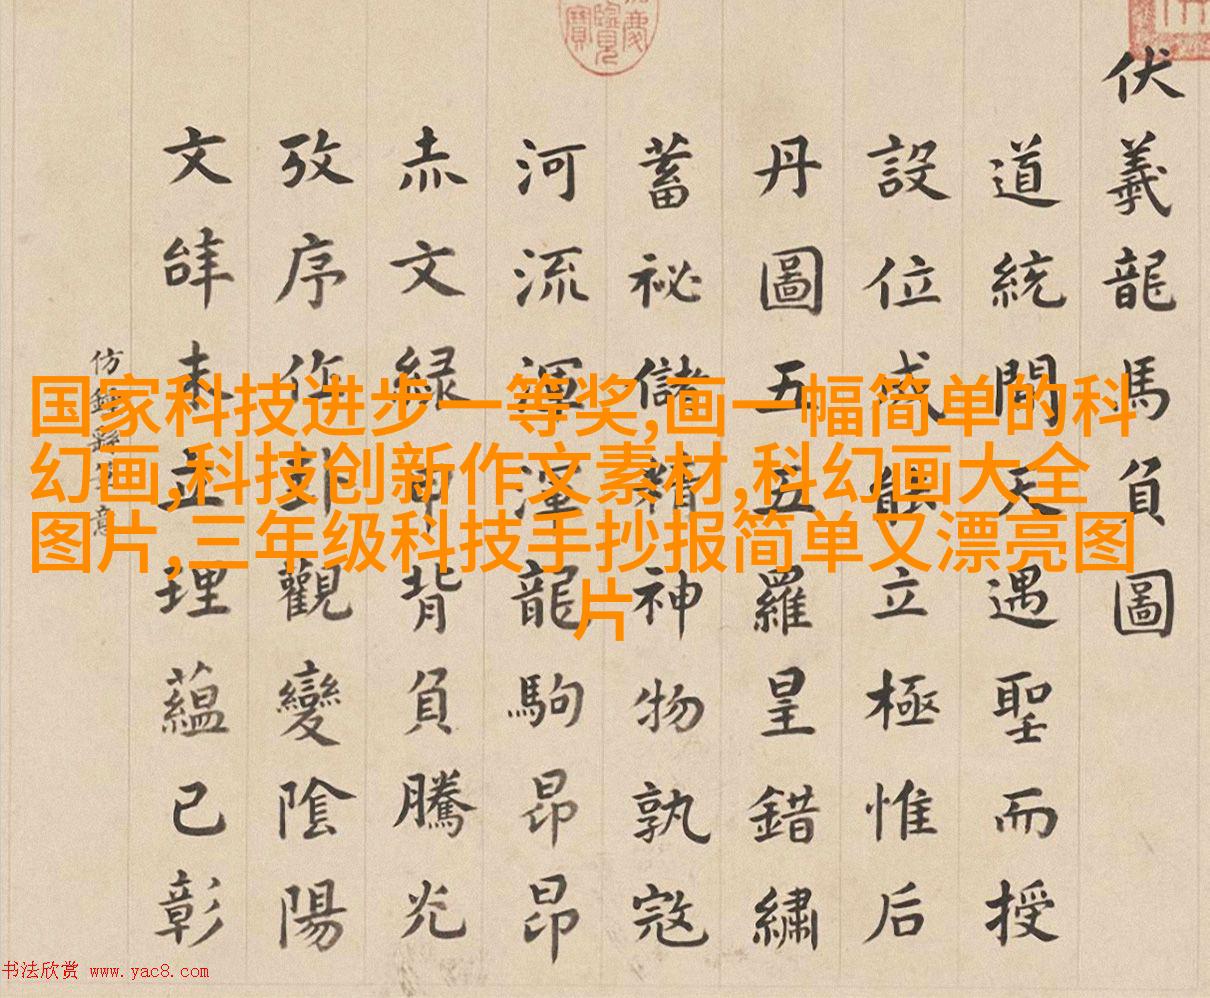 伏羲龍馬負圖
道統開天遇聖而授
設位成能立極惟后
丹圖五五羅皇錯繡
蓄祕儲精神物孰寇
河流渾渾龍駒昂昂
赤文緑甲背負騰光
攷序作卦觀變陰陽
文字未立理蘊已彰
国家科技进步一等奖,画一幅简单的科
幻画,科技创新作文素材,科幻画大全
图片,三年级科技手抄报简单又漂亮图
片
书法欣赏 www.yac8.com